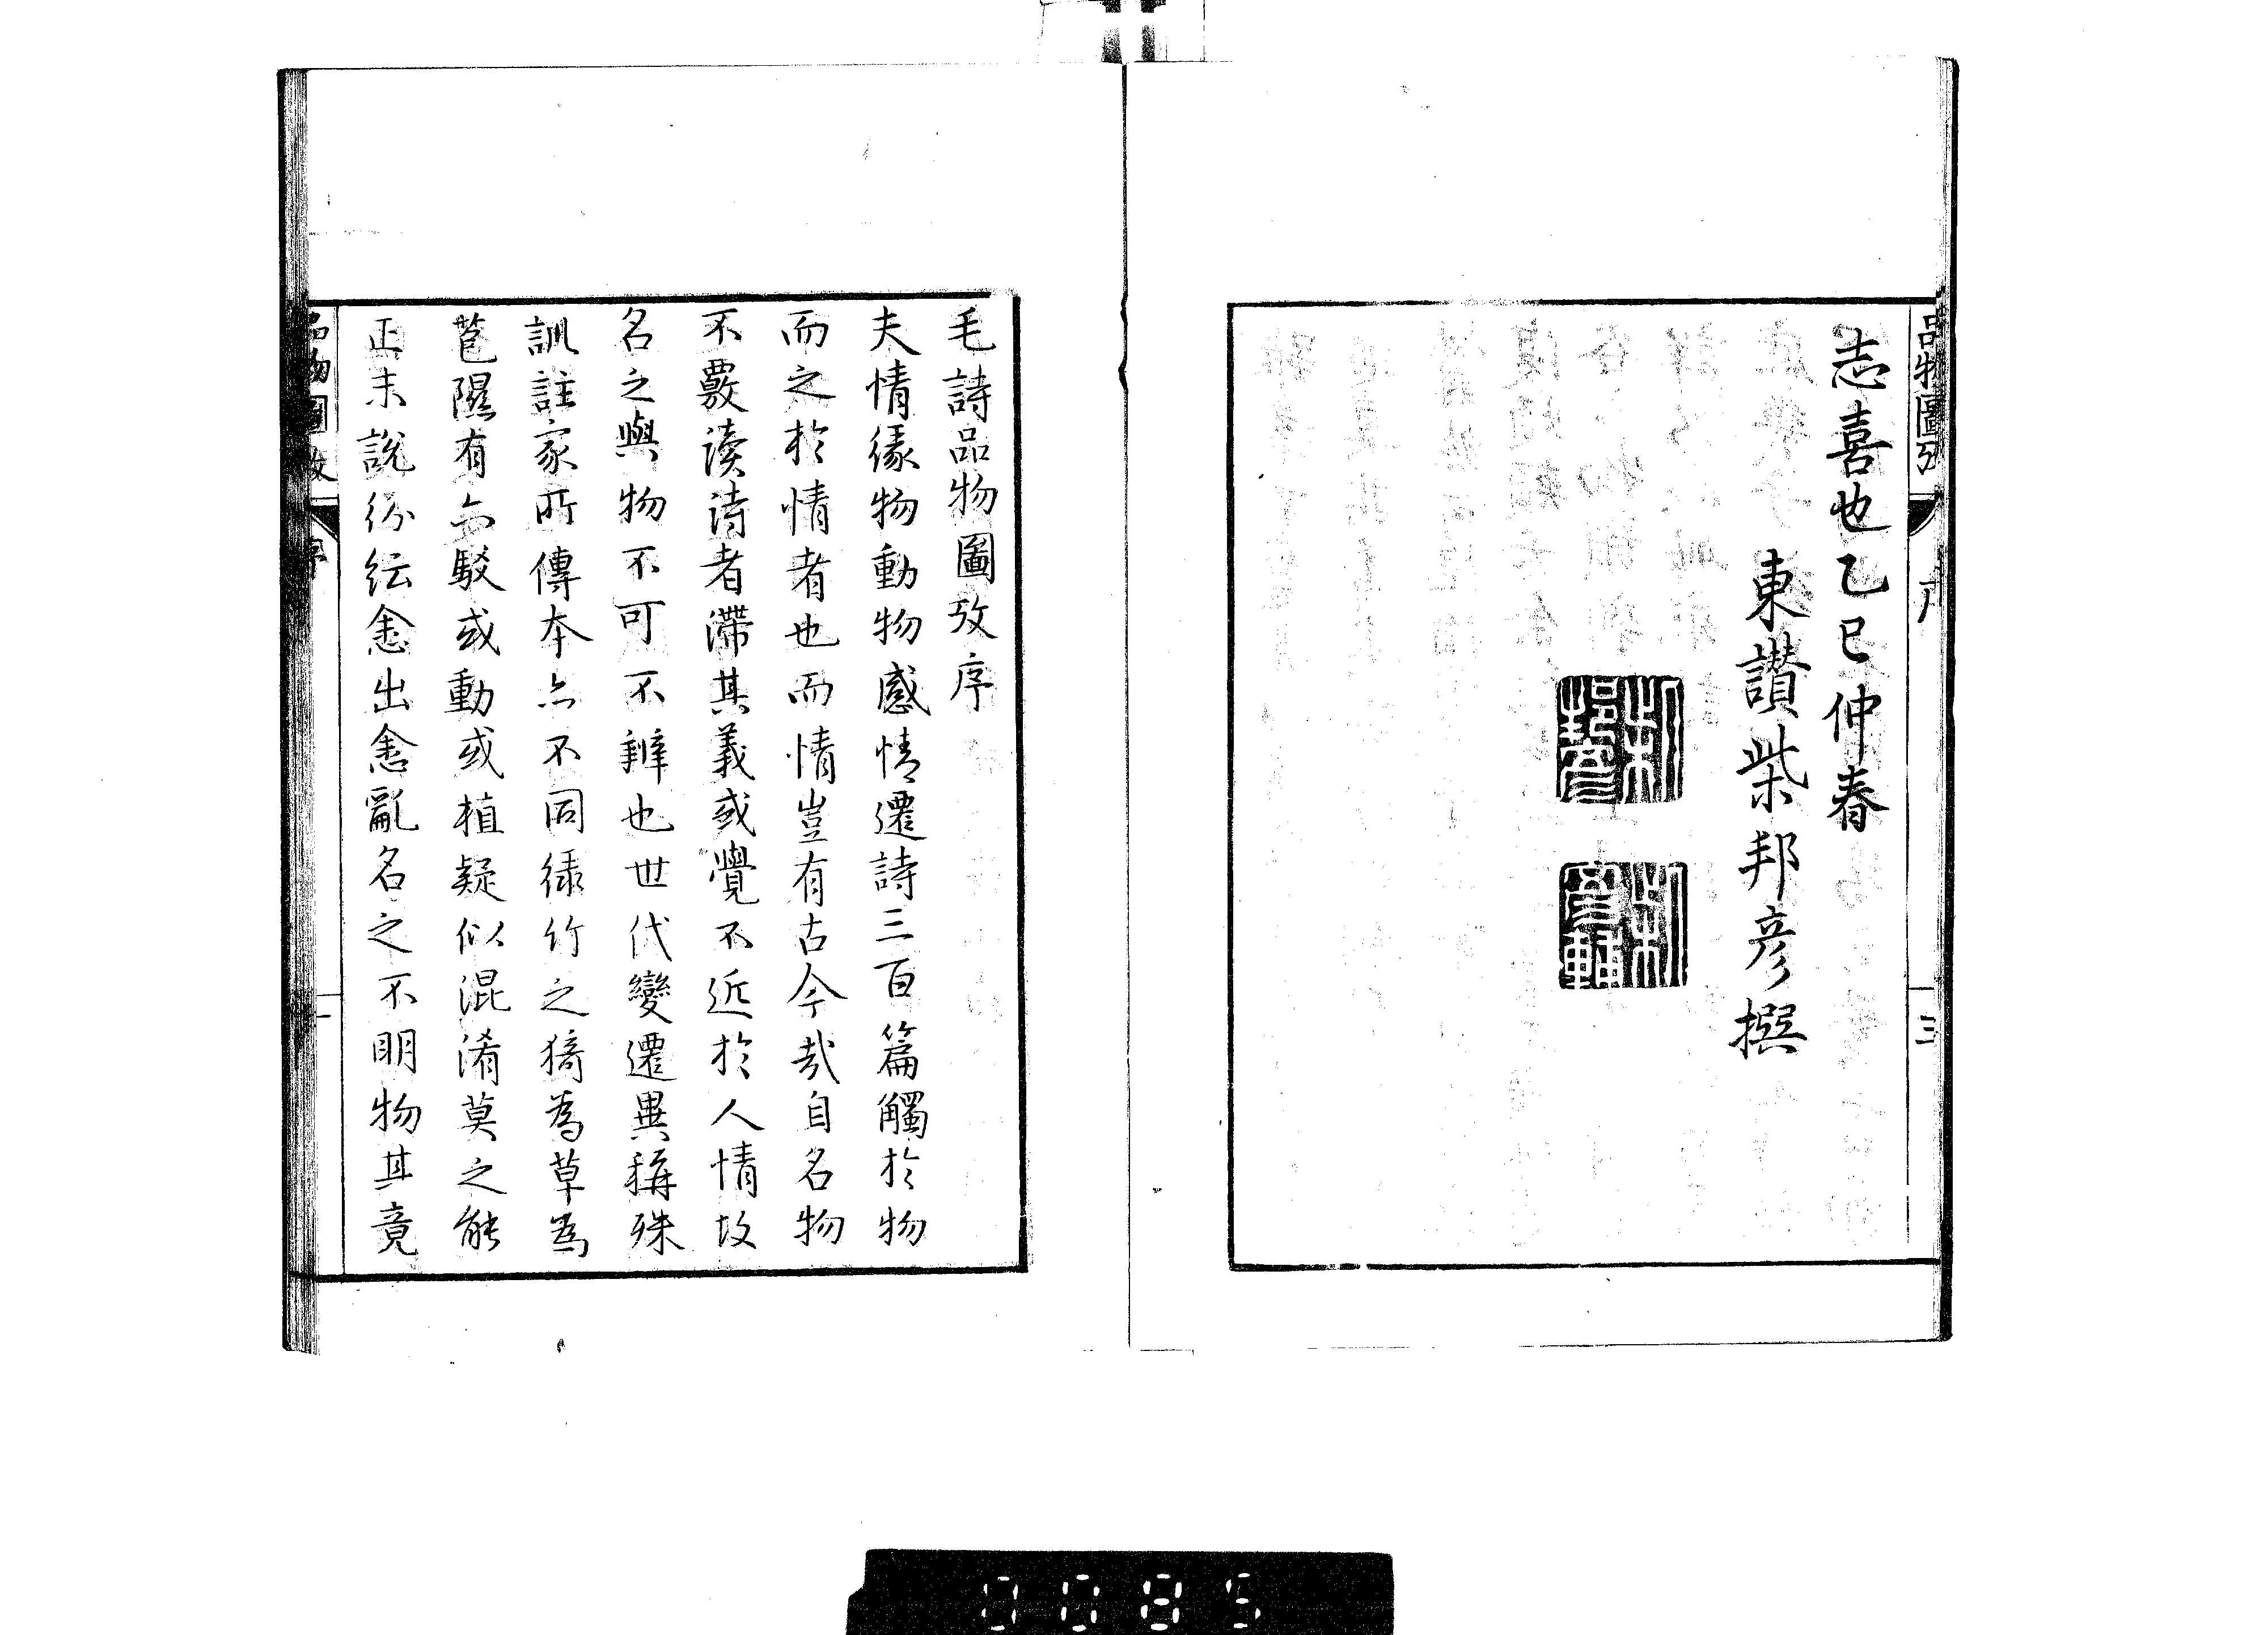 品物圖攷
序
三
志喜也乙巳仲春
東讃柴邦彦撰
柴邦彦
柴彦輔
毛詩品物圖攷序
夫情緣物動物感情遷詩三百篇觸於物
而之於情者也而情豈有古今哉自名物
不覈读诗者滯其義或覺不近於人情故
名之與物不可不辨也世代變遷異稱殊
訓註家所傳本亦不同綠竹之猗為草為
萇隰有六駁或動或植疑似混淆莫之能
正末說紛紜愈出愈亂名之不明物其竟
品物圖攷
序
一
0085